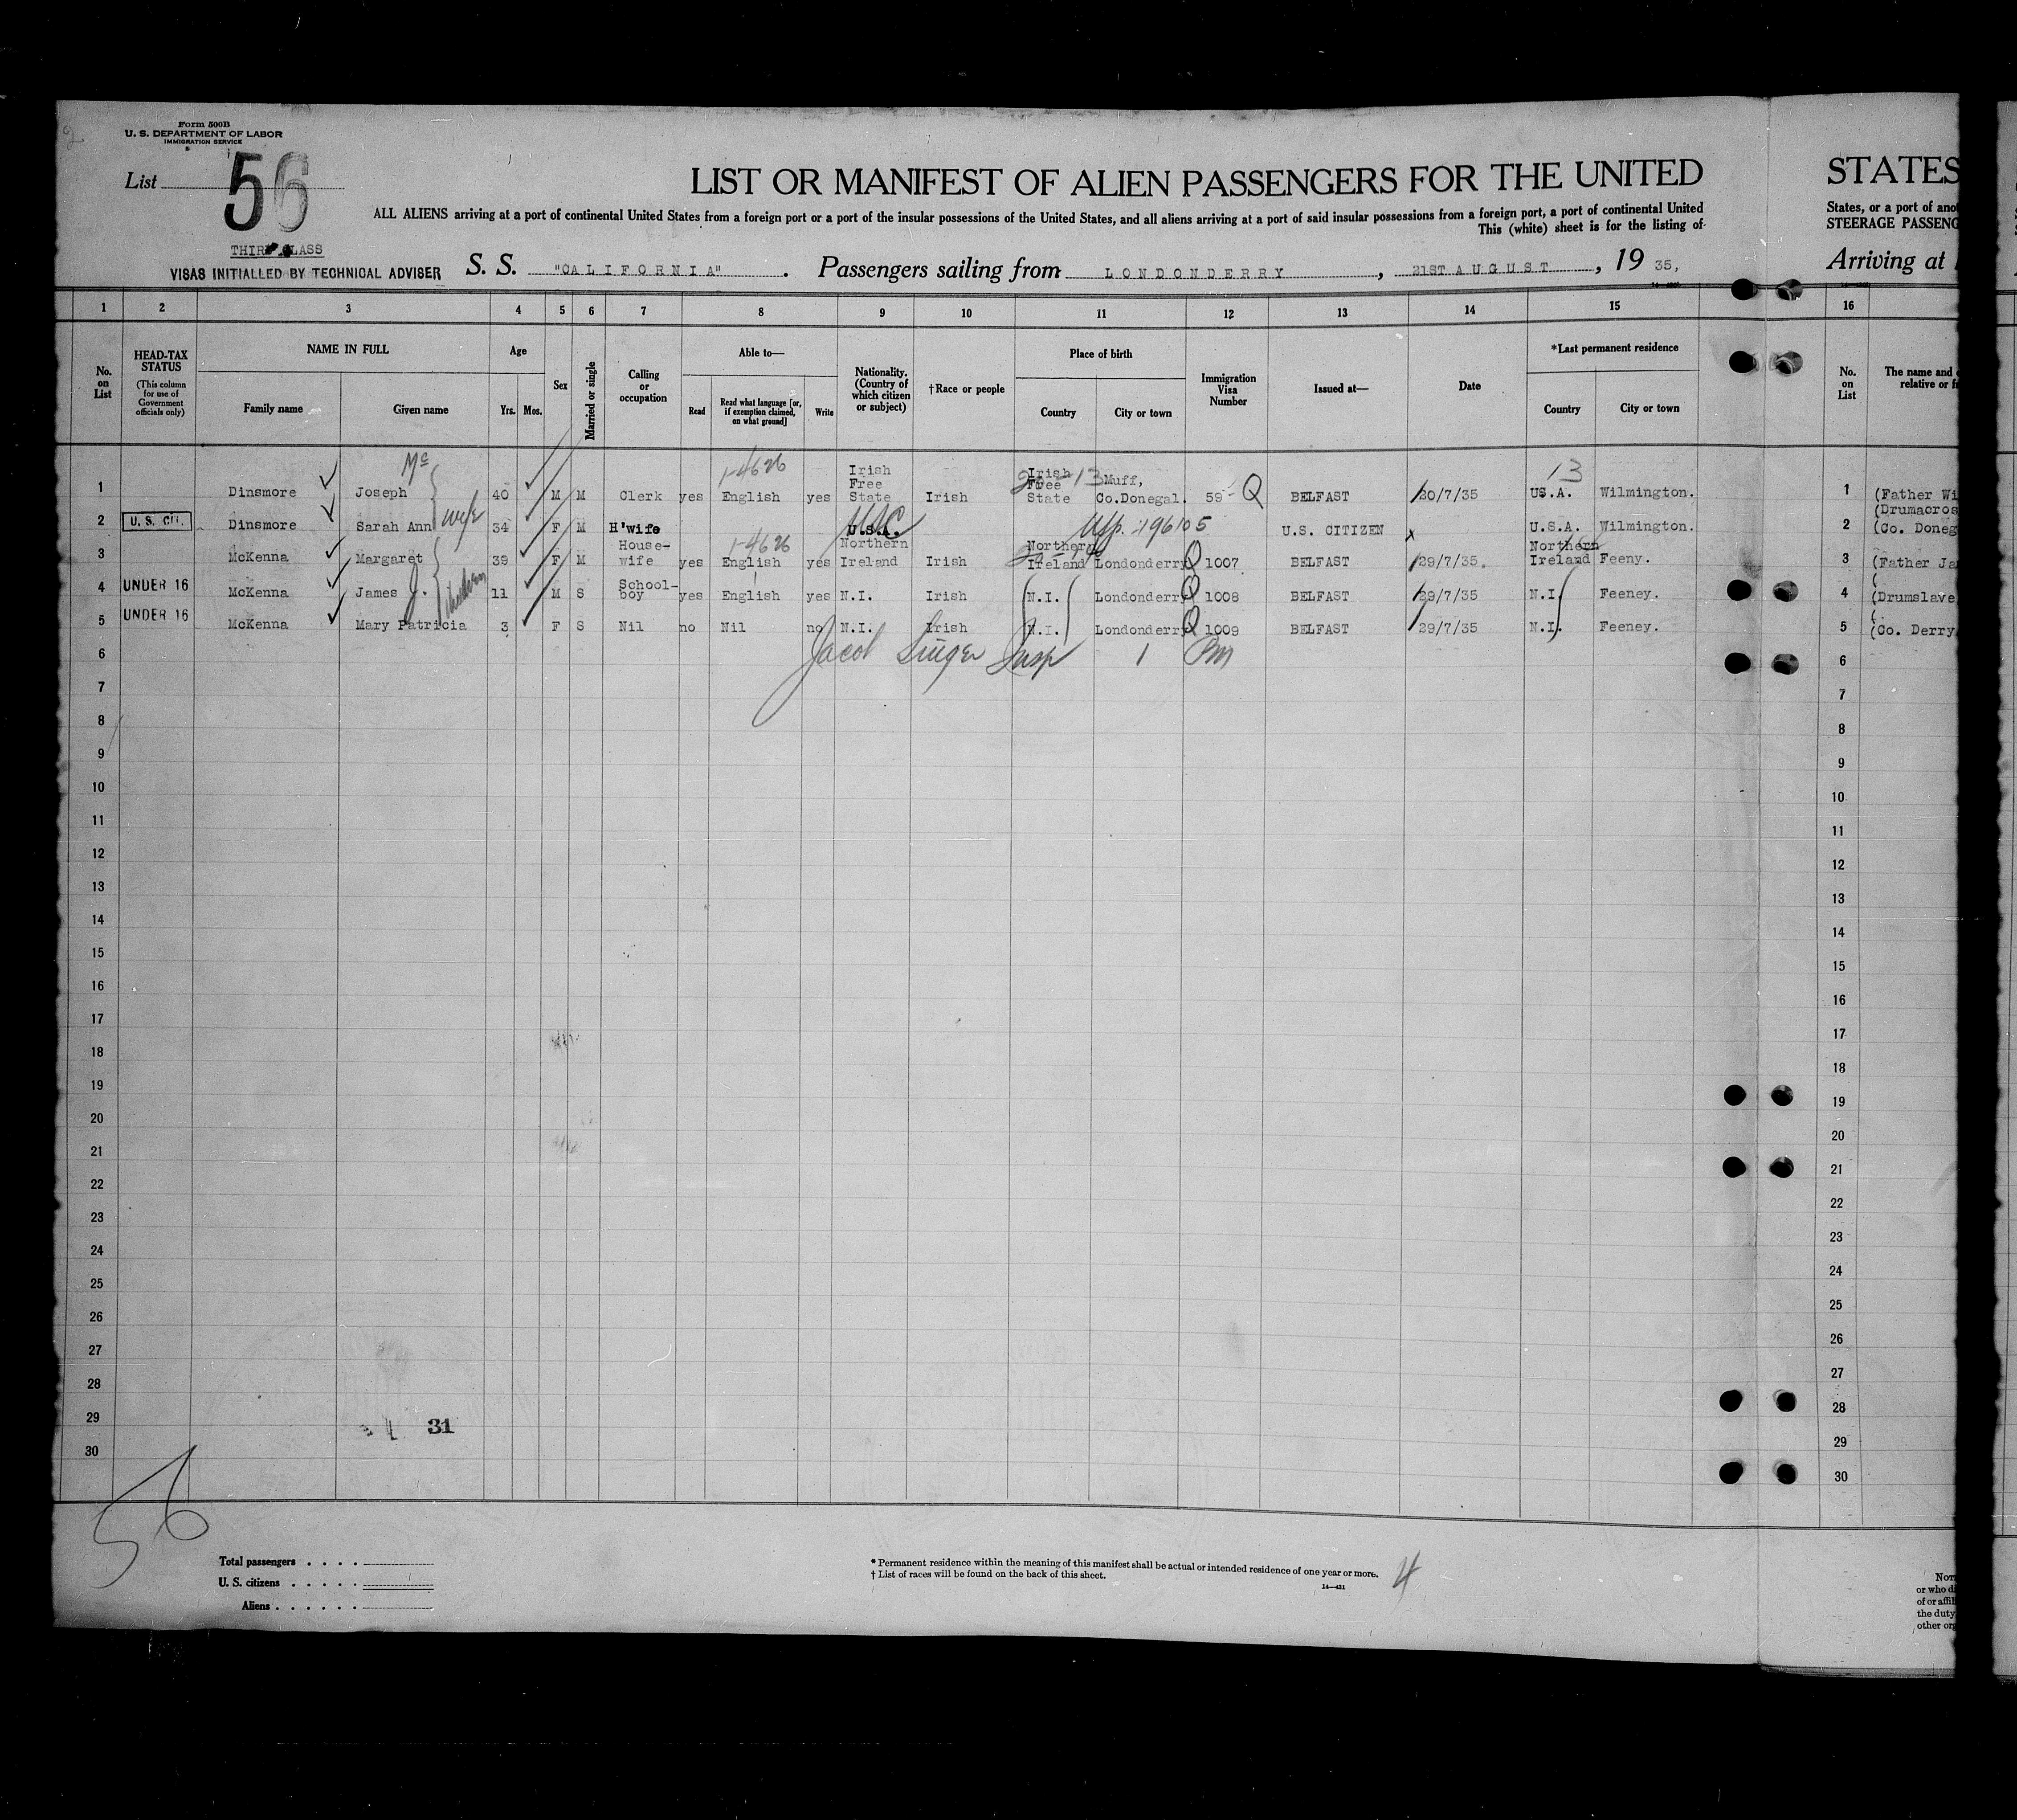 Form 500B
U. S. DEPARTMENT OF LABOR
IMMIGRATION SERVICE
List 56
LIST OR MANIFEST OF ALIEN PASSENGERS FOR THE UNITED
STATES
ALL ALIENS arriving at a port of continental United States from a foreign port or a port of the insular possessions of the United States, and all aliens arriving at a port of said insular possessions from a foreign port, a port of continental United
States, or a port of anot
This (white) sheet is for the listing of
STEERAGE PASSENG
THIRD CLASS
VISAS INITIALLED BY TECHNICAL ADVISER
S. S. "CALIFORNIA". Passengers sailing from LONDONDERRY, 21ST AUGUST, 19 35,
Arriving at
1 2 3 4 5 6 7 8 9 10 11 12 13 14 15 16
No. on List
HEAD-TAX STATUS
(This column for use of Government officials only)
NAME IN FULL
Family name Given name
Age
Yrs. Mos.
Sex
Married or single
Calling or occupation
Able to—
Read
Read what language [or, if exemption claimed, on what ground]
Write
Nationality. (Country of which citizen or subject)
†Race or people
Place of birth
Country City or town
Immigration Visa Number
Issued at—
Date
*Last permanent residence
Country City or town
No. on List
The name and
relative or fr
Mc 1-4626 13 13
1 Dinsmore Joseph 40 M M Clerk yes English yes Irish Free State Irish Irish Free State Muff, Co.Donegal. 59 Q BELFAST 20/7/35 US.A. Wilmington. 1 (Father Wi
(Drumacros
2 U. S. CIT. Dinsmore Sarah Ann wife 34 F M H'wife U.S.A. USC 196105 U.S. CITIZEN x U.S.A. Wilmington. 2 (Co. Doneg
1-4626
3 McKenna Margaret 39 F M House-wife yes English yes Northern Ireland Irish Northern Ireland Londonderry Q 1007 BELFAST 29/7/35. Northern Ireland Feeny. 3 (Father Ja
4 UNDER 16 McKenna James J. children 11 M S School-boy yes English yes N.I. Irish N.I. Londonderry Q 1008 BELFAST 29/7/35 N.I. Feeney. 4 (Drumslave
5 UNDER 16 McKenna Mary Patricia 3 F S Nil no Nil no N.I. Irish N.I. Londonderry Q 1009 BELFAST 29/7/35 N.I. Feeney. 5 (Co. Derry
6 Jacob Singer Insp 1 6
7 7
8 8
9 9
10 10
11 11
12 12
13 13
14 14
15 15
16 16
17 17
18 18
19 19
20 20
21 21
22 22
23 23
24 24
25 25
26 26
27 27
28 28
29 31 29
30 30
56
Total passengers
U. S. citizens
Aliens
* Permanent residence within the meaning of this manifest shall be actual or intended residence of one year or more.
† List of races will be found on the back of this sheet.
14—431
4
or who di
of or affil
the duty
other org